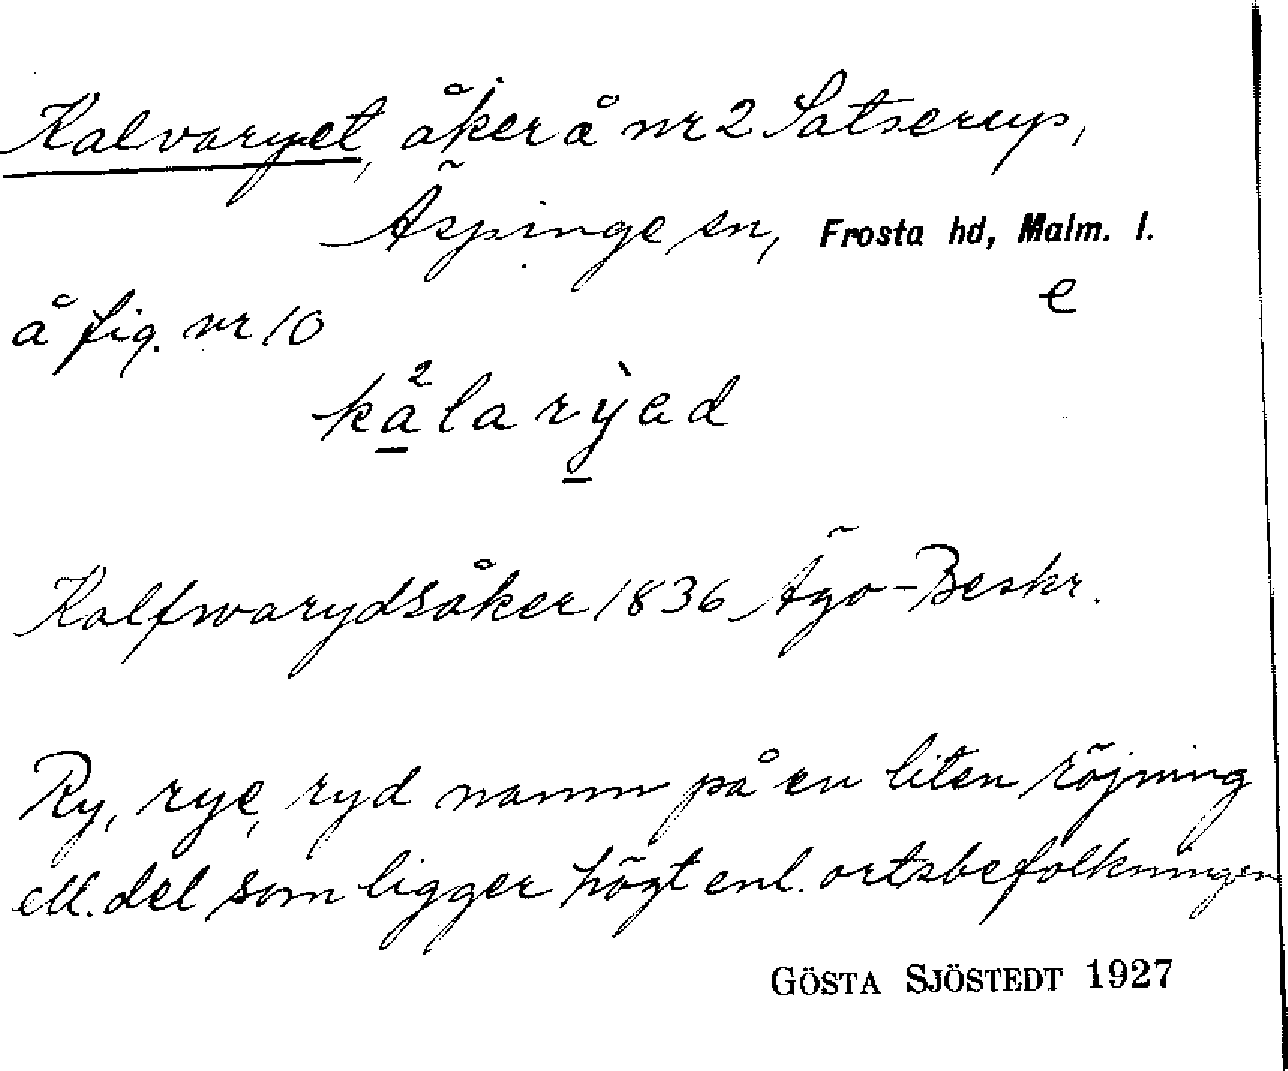 Kalvaryet, åker å nr 2 Satserup,
Äspinge sn, Frosta hd, Malm. l.
e
å fig. nr 10
kå2la rỳed
Kalfwarydsåker 1836 Ägo-Beskr.
Ry, rye, ryd namn på en liten röjning
ell. del som ligger högt enl. ortsbefolkningen
GÖSTA SJÖSTEDT 1927